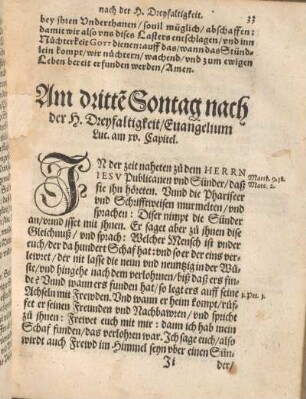 nach der H. Dreyfaltigkeit.
33
bey jhren Vnderthanen / souil müglich / abschaffen:
damit wir also vns dises Lasters entschlagen / vnd inn
Nüchterkeit GOTT dienen: auff das / wann das Stünd-
lein kompt / wir nüchtern / wachend / vnd zum ewigen
Leben bereit erfunden werden / Amen.
Am drittē Sontag nach
der H. Dreyfaltigkeit / Euangelium
Luc. am xv. Capitel.
IN der zeit naheten zů dem HERRN
IESV Publicanen vnd Sünder / daß
sie jhn höreten. Vnnd die Phariseer
vnd Schrifftweisen murmelten / vnd
sprachen: Diser nimpt die Sünder
an / vnnd isset mit jhnen. Er saget aber zů jhnen dise
Gleichnuß / vnd sprach: Welcher Mensch ist vnder
euch / der da hundert Schaf hat: vnd so er der eins ver-
lewret / der nit lasse die neun vnd neuntzig in der Wü-
ste / vnd hingehe nach dem verlohrnen / biß daß ers fin-
det? Vnnd wann ers funden hat / so legt ers auff seine
Achseln mit Frewden. Vnd wann er heim kompt / růf-
fet er seinen Freunden vnd Nachbawren / vnd spricht
zů jhnen: Frewet euch mit mir: dann ich hab mein
Schaf funden / das verlohren war. Ich sage euch / also
wirdt auch Frewd im Himmel seyn vber einen Sün-
Ii
der /
Matth. 9.
Marc. 2.
1. Pet. 2.